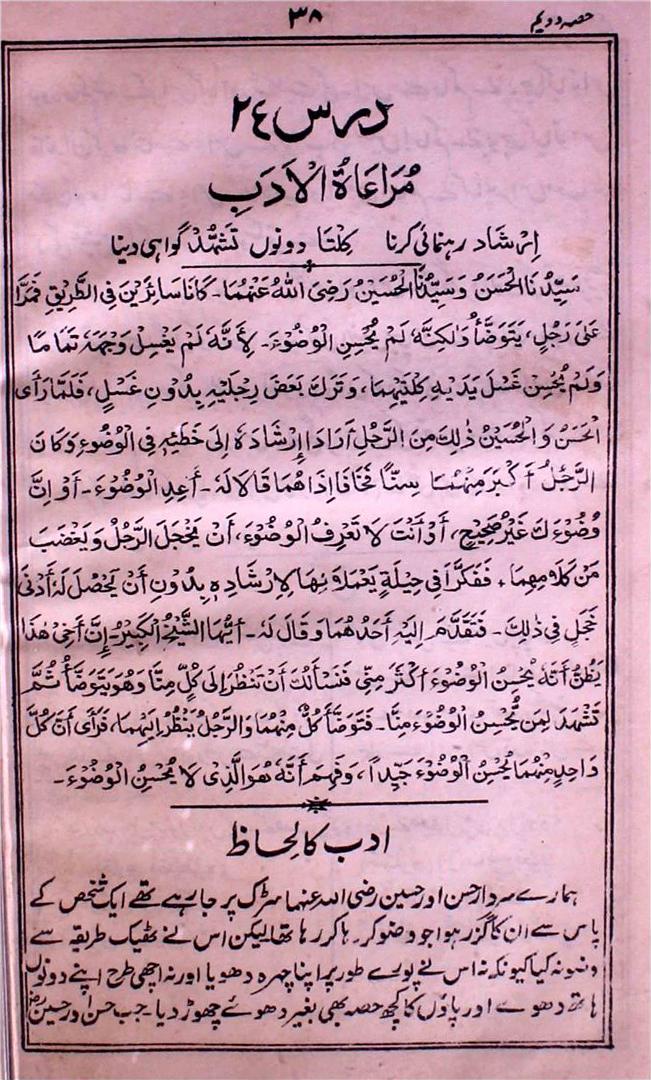 حصہ دویم
۳۸
درس ۲٤
مُرَاعَاةُ الْاَدَبِ
اِرْشَاد رہنمائی کرنا کِلْتَا دونوں تَشَہُّد گواہی دینا
سَيِّدُنَا الْحَسَنُ وَسَيِّدُنَا الْحُسَيْنُ رَضِىَ اللهُ عَنْهُمَا۔ كَانَا سَائِرَيْنِ فِى الطَّرِيْقِ فَمَرَّا
عَلىٰ رَجُلٍ، يَتَوَضَّأُ وَلٰكِنَّهٗ لَمْ يُحْسِنِ الْوُضُوْءَ۔ لِأَنَّهٗ لَمْ يَغْسِلْ وَجْهَهٗ تَمَامًا
وَلَمْ يُحْسِنْ غَسْلَ يَدَيْهِ كِلْتَيْهِمَا، وَتَرَكَ بَعْضَ رِجْلَيْهِ بِدُوْنِ غَسْلٍ، فَلَمَّا رَأَى
الْحَسَنُ وَالْحُسَيْنُ ذٰلِكَ مِنَ الرَّجُلِ أَرَادَا إِرْشَادَهٗ إِلىٰ خَطَئِهٖ فِى الْوُضُوْءِ وَكَانَ
الرَّجُلُ أَكْبَرَ مِنْهُمَا سِنًّا فَخَافَا إِذَا هُمَا قَالَا لَهٗ۔ أَعِدِ الْوُضُوْءَ۔ أَوْ إِنَّ
وُضُوْءَكَ غَيْرُ صَحِيْحٍ، أَوْ أَنْتَ لَا تَعْرِفُ الْوُضُوْءَ، أَنْ يَخْجَلَ الرَّجُلُ وَيَغْضَبَ
مَنْ كَلَامِهِمَا، فَفَكَّرَا فِى حِيْلَةٍ يَعْمَلَانِهَا لِإِرْشَادِهٖ بِدُوْنِ أَنْ يَحْصُلَ لَهٗ أَدْنىٰ
خَجَلٍ فِى ذٰلِكَ۔ فَتَقَدَّمَ إِلَيْهِ أَحَدُهُمَا وَقَالَ لَهٗ۔ أَيُّهَا الشَّيْخُ الْكَبِيْرُ۔ إِنَّ أَخِىْ هٰذَا
يَظُنُّ أَنَّهٗ يُحْسِنُ الْوُضُوْءَ أَكْثَرَ مِنِّى فَنَسْأَلُكَ أَنْ تَنْظُرَ إِلىٰ كُلٍّ مِنَّا وَهُوَ يَتَوَضَّأُ ثُمَّ
تَشْهَدَ لِمَنْ يُحْسِنُ الْوُضُوْءَ مِنَّا۔ فَتَوَضَّأَ كُلٌّ مِنْهُمَا وَالرَّجُلُ يَنْظُرُ إِلَيْهِمَا، فَرَأَى أَنَّ كُلَّ
وَاحِدٍ مِنْهُمَا يُحْسِنُ الْوُضُوْءَ جَيِّدًا، وَفَهِمَ أَنَّهٗ هُوَ الَّذِىْ لَا يُحْسِنُ الْوُضُوْءَ۔
ادب کا لحاظ
ہمارے سردار حسن اور حسین رضی اللہ عنہما سڑک پر جارہے تھے ایک شخص کے
پاس سے ان کا گزر ہوا جو وضو کر رہا تھا لیکن اس نے ٹھیک طریقہ سے
وضو نہ کیا کیونکہ نہ اس نے پورے طور پر اپنا چہرہ دھویا اور نہ اچھی طرح اپنے دونوں
ہاتھ دھوئے اور پاؤں کا کچھ حصہ بھی بغیر دھوئے چھوڑ دیا۔ جب حسن اور حسین رض